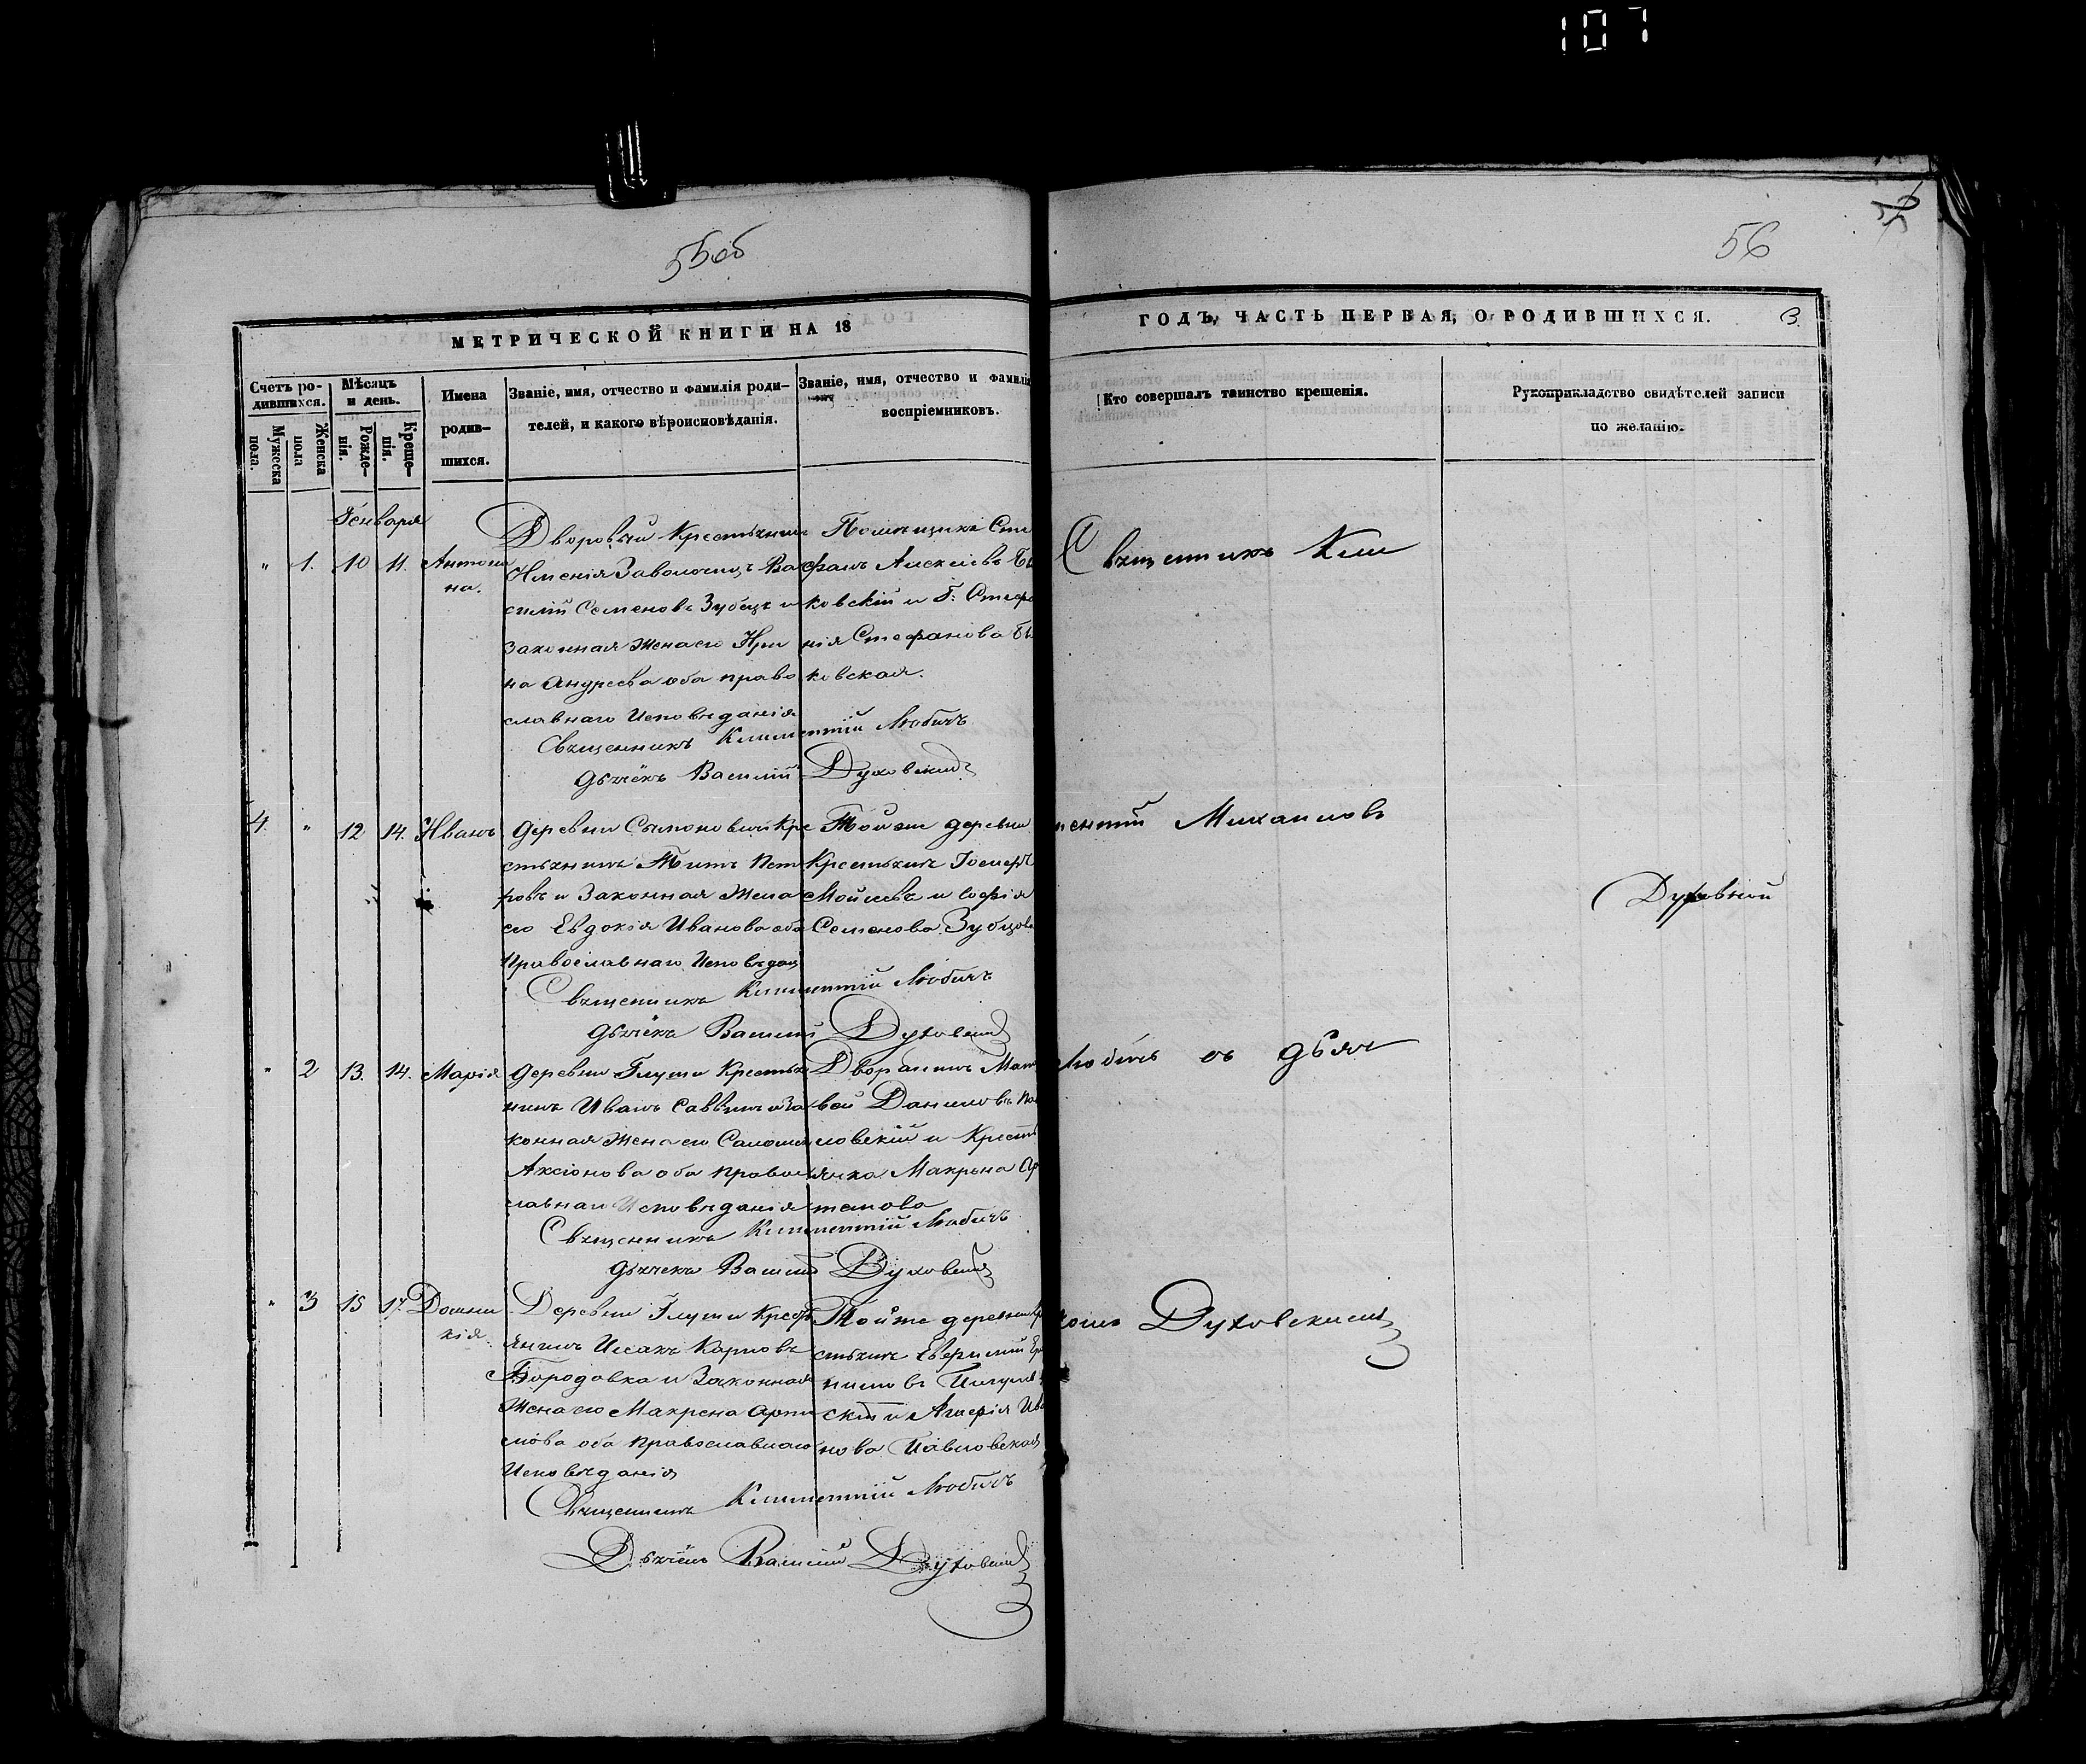 107
55об
56
МЕТРИЧЕСКОЙ КНИГИ НА 18
ГОДЪ, ЧАСТЬ ПЕРВАЯ, О РОДИВШИХСЯ.
3.
Счетъ ро-
дившихся.
Мужеска
пола.
Женска
пола
Мѣсяцъ
и день.
Рожде-
нія.
Креще-
нія.
Имена
родив-
шихся.
Званіе, имя, отчество и фамилія роди-
телей, и какого вѣроисповѣданія.
Званіе, имя, отчество и фамилія
воспріемниковъ.
Кто совершалъ таинство крещенія.
Рукоприкладство свидѣтелей записи
по желанію.
Генваря
" 1. 10 11. Антони
на.
Дворовый Крестьянинъ
Имѣнія Заволочицъ Ва
силій Семеновъ Зубецъ и
законная жена его Ири
на Андреева оба право
славнаго Исповѣданія
Помѣщикъ Сте
фанъ Алексѣевъ
ковскій и Г: Стефа
нія Стефанова
ковская.
Священникъ Климентій Любичъ
Дьячёкъ Василій Духовскій
4 " 12 14. Иванъ
Деревни Сымоновичъ Кре
стьянинъ Титъ Пет
ровъ и Законная Жена
его Евдокія Иванова оба
Православнаго Исповѣдан
Той же деревни
Крестьянинъ
Мойсеевъ и Софія
Семенова Зубцова
Священникъ Климентій Любичъ
Дьячёкъ Василій Духовскій
" 2 13. 14. Марія
Деревни Глуши Крестья
нинъ Иванъ Саввинъ и За
конная Жена его Саломея
Аксіонова оба Правос
лавнаго Исповѣданія
Дворанинъ Мат
вей Даниловъ
ловскій и Кресть
янка Макрына
тапова
Священникъ Климентій Любичъ
Дьячекъ Василій Духовскій
" 3 15 17. Домни
кія.
Деревни Глуши Крест
янинъ Исаакъ Карповъ
Бородовка и Законная
Жена его Макрена
оба Православнаго
Исповѣданія
Той же деревни
стьянинъ
скій и Агафія Ива
нова Павловская
Священникъ Климентій Любичъ
Дьячёкъ Василій Духовскій
Священникъ Кли
ментій Михаиловъ
Любичъ съ дьяч
комъ Духовскимъ
Духовный